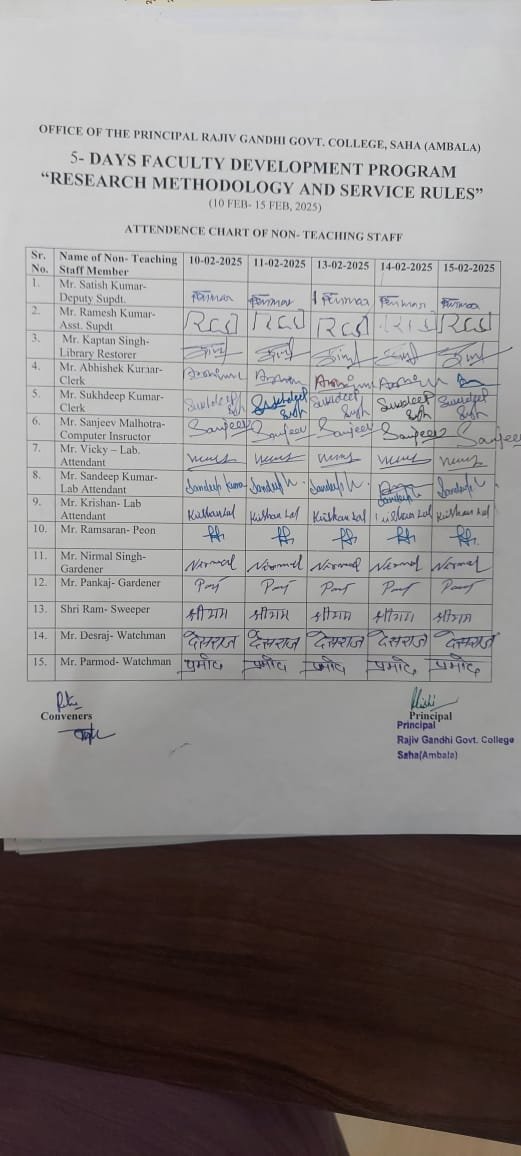 OFFICE OF THE PRINCIPAL RAJIV GANDHI GOVT. COLLEGE, SAHA (AMBALA)
5- DAYS FACULTY DEVELOPMENT PROGRAM
“RESEARCH METHODOLOGY AND SERVICE RULES”
(10 FEB- 15 FEB, 2025)
ATTENDENCE CHART OF NON- TEACHING STAFF
Sr. No. Name of Non- Teaching Staff Member 10-02-2025 11-02-2025 13-02-2025 14-02-2025 15-02-2025
1. Mr. Satish Kumar- Deputy Supdt.
2. Mr. Ramesh Kumar- Asst. Supdt
3. Mr. Kaptan Singh- Library Restorer
4. Mr. Abhishek Kumar- Clerk
5. Mr. Sukhdeep Kumar- Clerk Sukhdeep Sukhdeep Sukhdeep Sukhdeep Sukhdeep
6. Mr. Sanjeev Malhotra- Computer Insructor Sanjeev Sanjeev Sanjeev Sanjeev Sanjeev
7. Mr. Vicky – Lab. Attendant
8. Mr. Sandeep Kumar- Lab Attendant Sandeep Kumar Sandeep K. Sandeep K. Sandeep K. Sandeep K.
9. Mr. Krishan- Lab Attendant Krishan Lal Krishan Lal Krishan Lal Krishan Lal Krishan Lal
10. Mr. Ramsaran- Peon
11. Mr. Nirmal Singh- Gardener Nirmal Nirmal Nirmal Nirmal Nirmal
12. Mr. Pankaj- Gardener
13. Shri Ram- Sweeper श्रीराम श्रीराम श्रीराम श्रीराम श्रीराम
14. Mr. Desraj- Watchman देसराज देसराज देसराज देसराज देसराज
15. Mr. Parmod- Watchman प्रमोद प्रमोद प्रमोद प्रमोद प्रमोद
Conveners
Principal
Principal
Rajiv Gandhi Govt. College
Saha(Ambala)